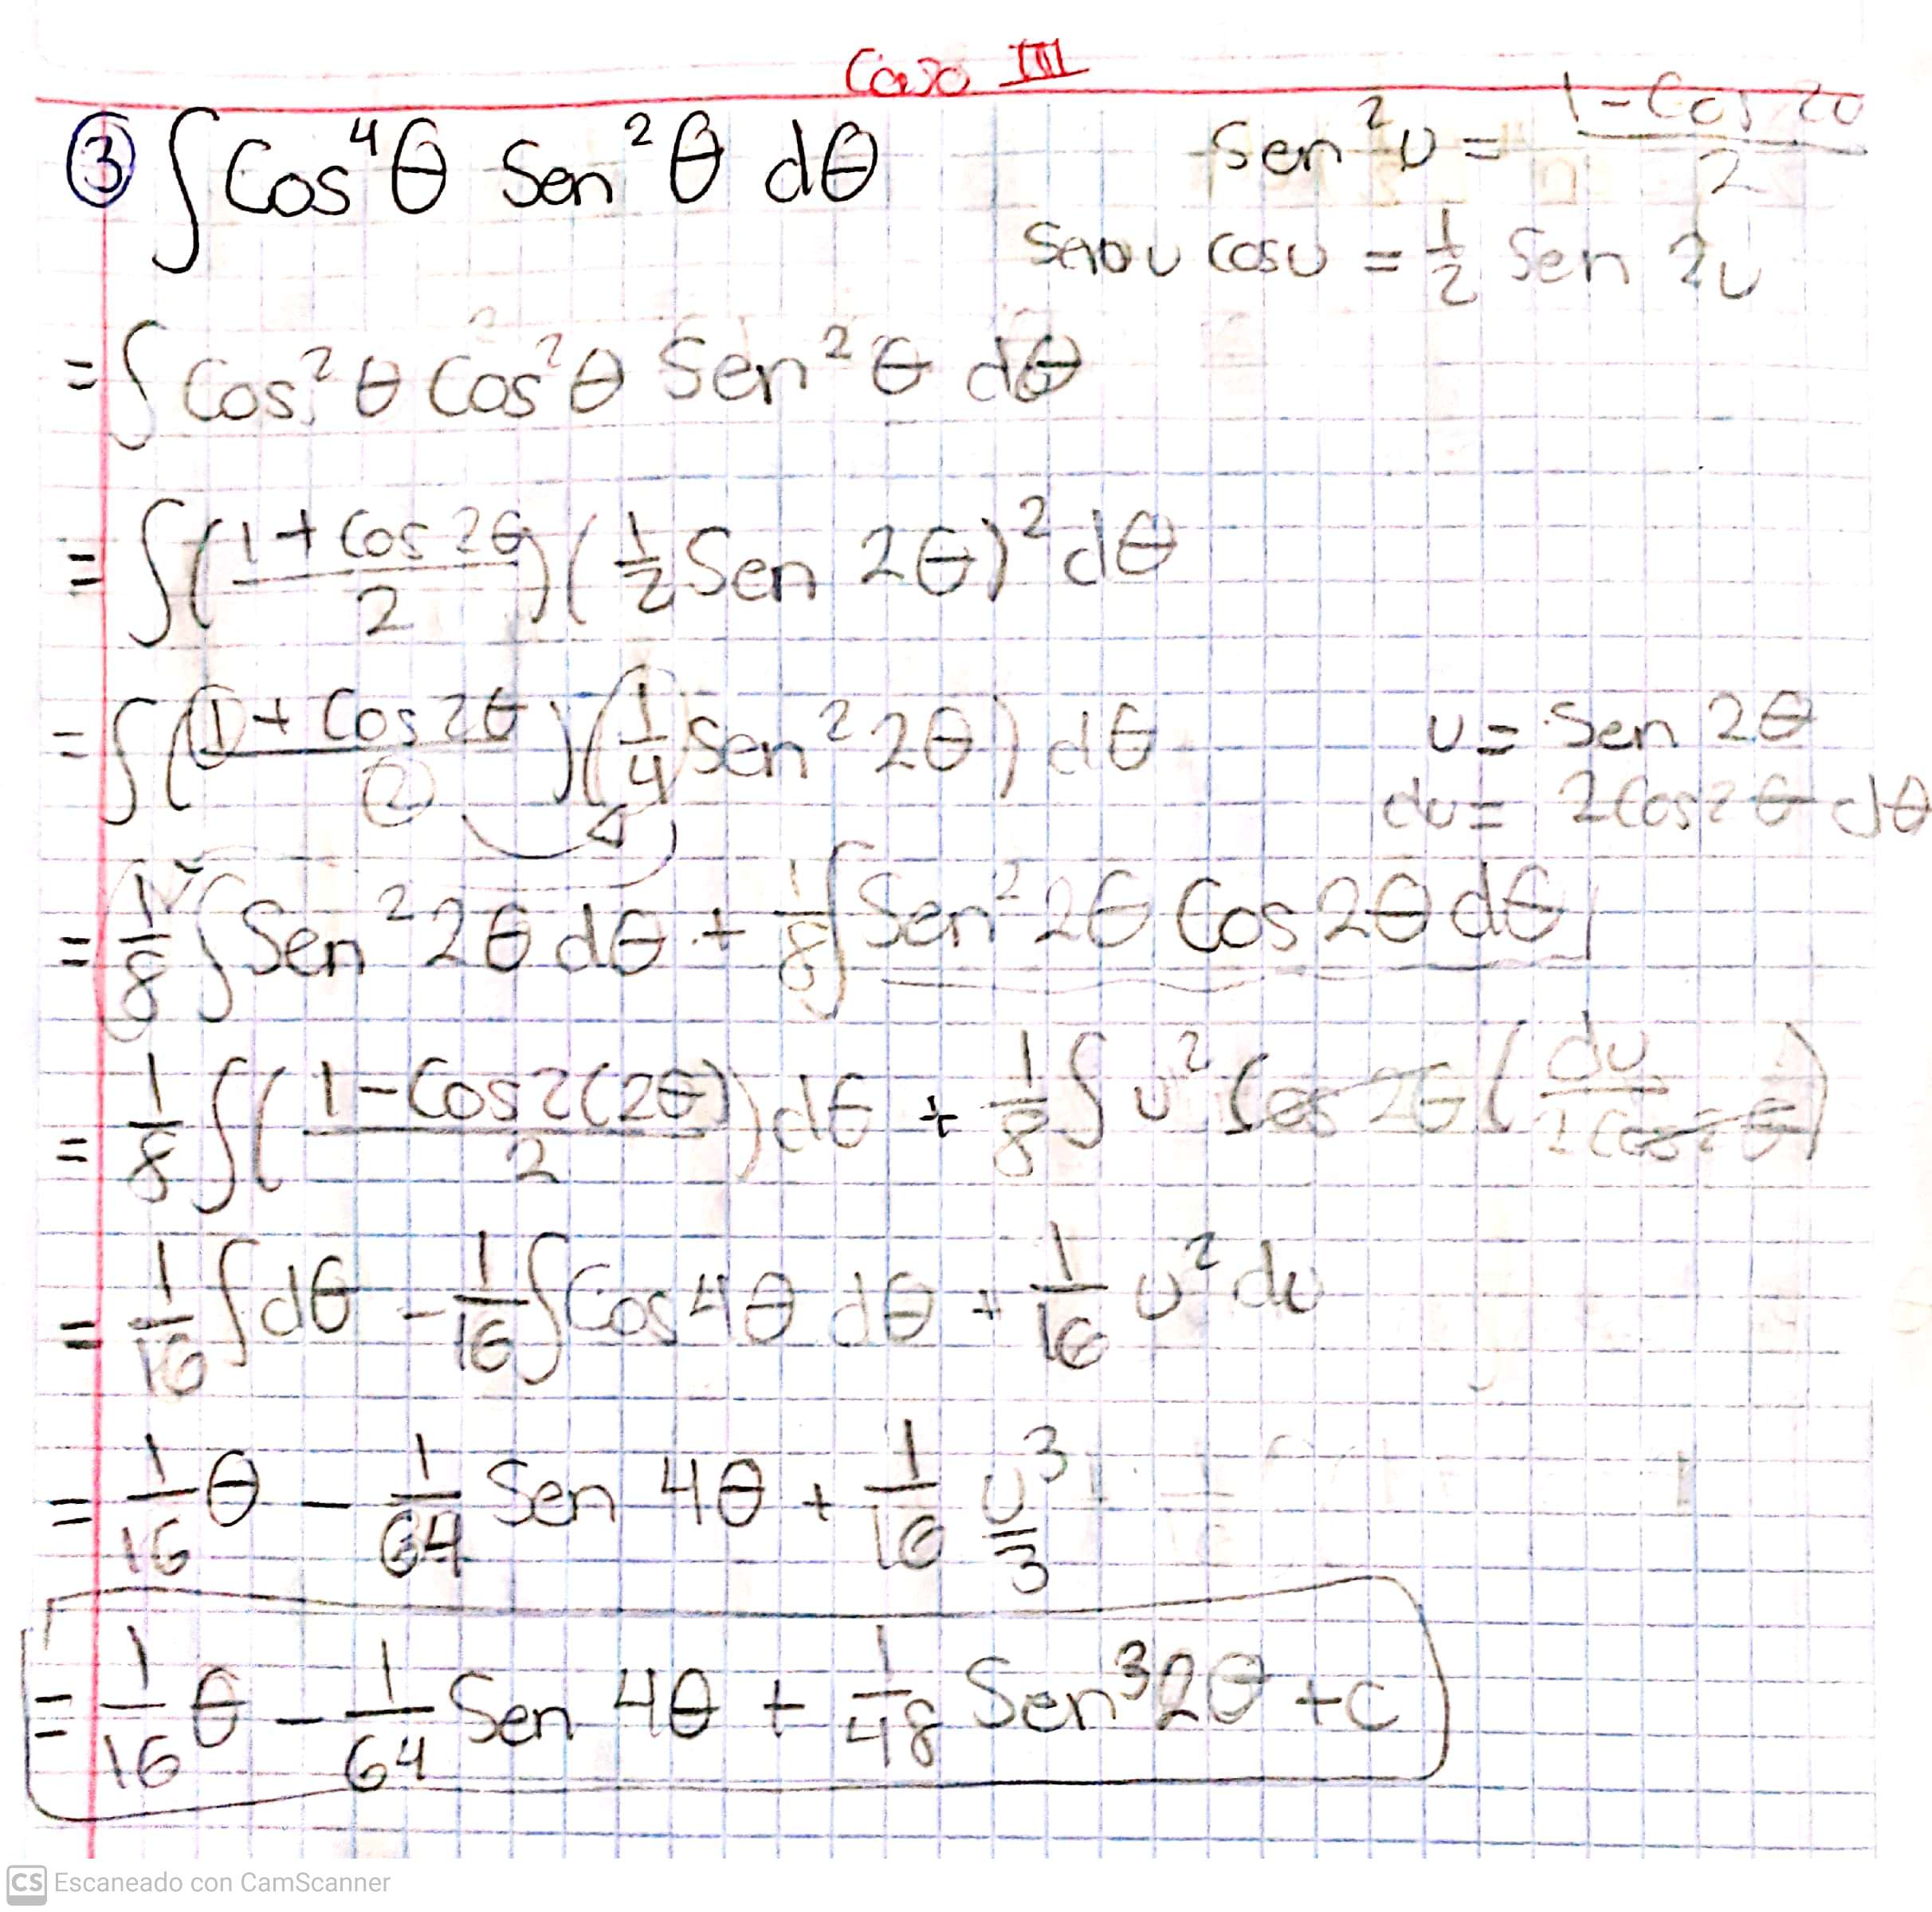 Caso III
③ ∫ Cos⁴θ Sen²θ dθ
Sen²u = (1 - Cos 2u)/2
Senu cosu = 1/2 Sen 2u
= ∫ Cos²θ Cos²θ Sen²θ dθ
= ∫ ((1 + Cos 2θ)/2) (1/2 Sen 2θ)² dθ
= ∫ ((1 + Cos 2θ)/2) (1/4 Sen² 2θ) dθ
u = Sen 2θ
du = 2Cos2θ dθ
= 1/8 ∫ Sen² 2θ dθ + 1/8 ∫ Sen² 2θ Cos 2θ dθ
= 1/8 ∫ ((1 - Cos 2(2θ))/2) dθ + 1/8 ∫ u² Cos 2θ (du/(2Cos2θ))
= 1/16 ∫ dθ - 1/16 ∫ Cos 4θ dθ + 1/16 u² du
= 1/16 θ - 1/64 Sen 4θ + 1/16 u³/3
= 1/16 θ - 1/64 Sen 4θ + 1/48 Sen³ 2θ + c
CS Escaneado con CamScanner